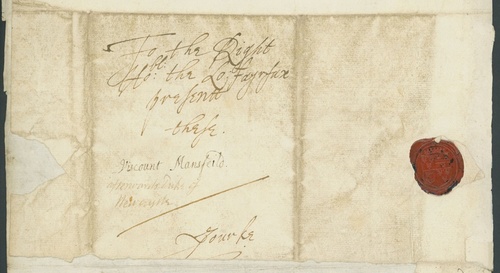 To the Right
Ho:ble: the Lo: Fayrfax
present
these.
Viscount Mansfeild
afterwards Duke of
Newcastle.
Yourke